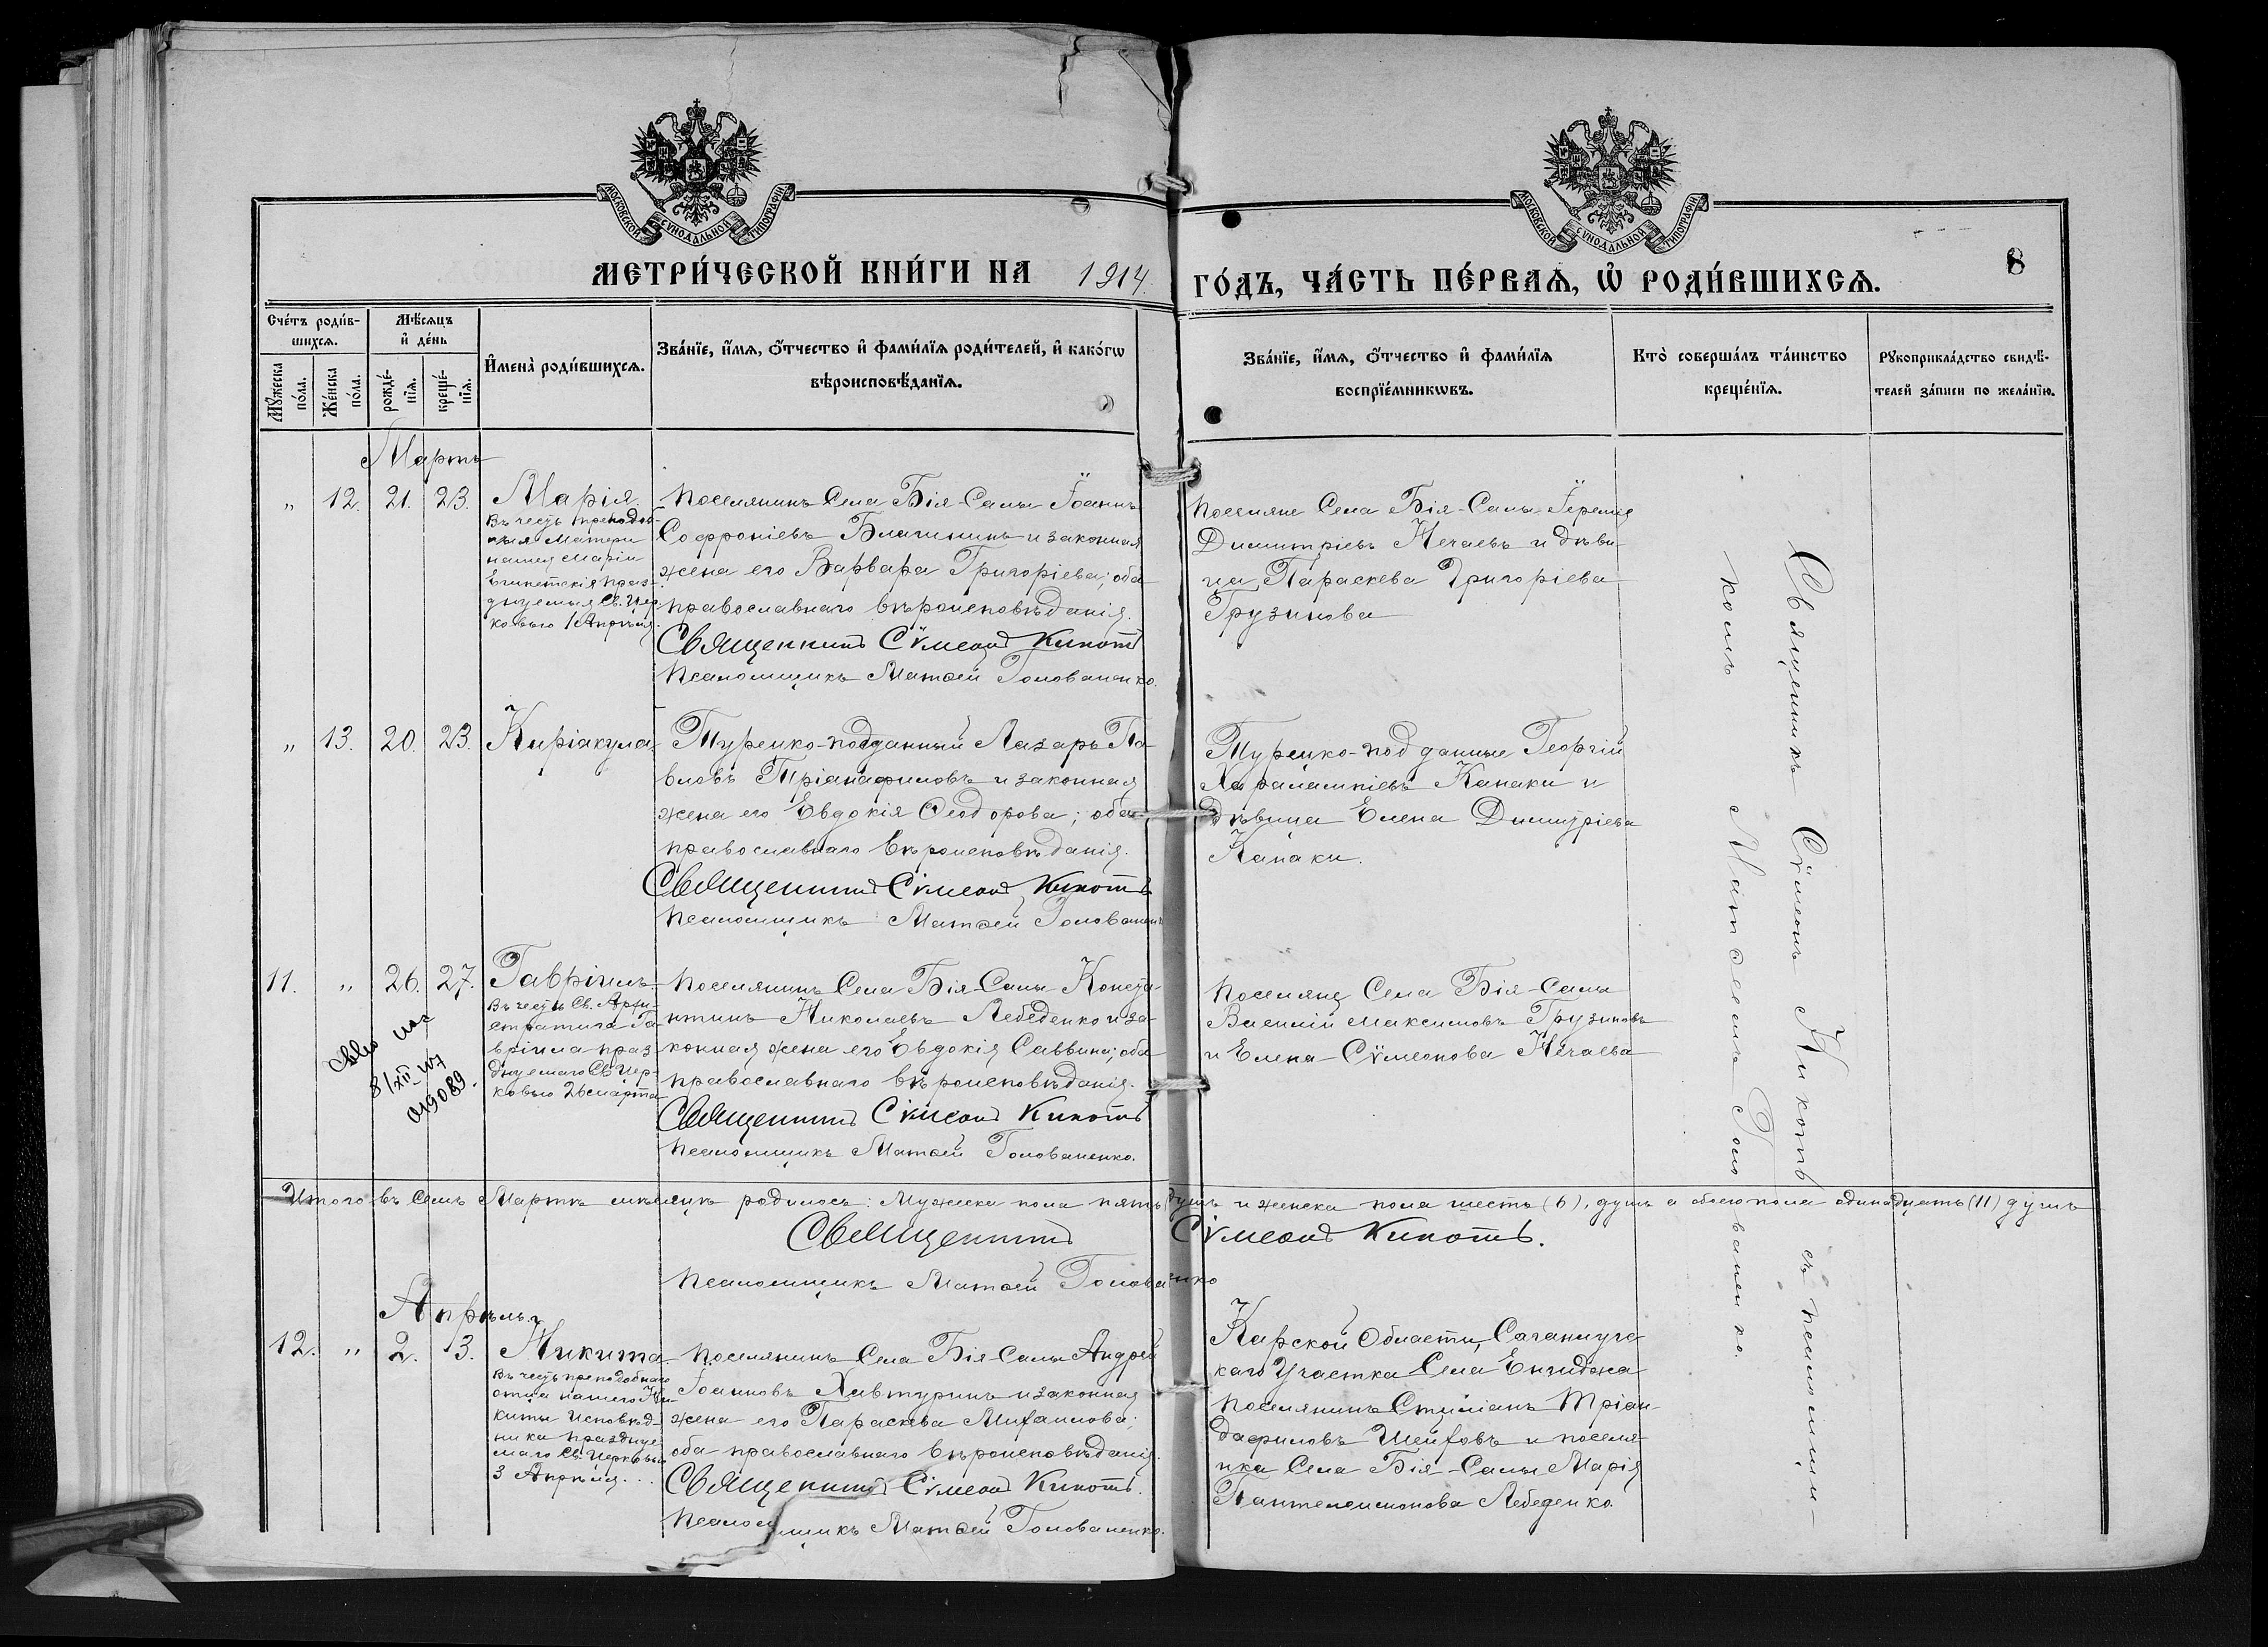 МОСКОВСКОЙ СѴНОДАЛЬНОЙ ТИПОГРАФІИ
МОСКОВСКОЙ СѴНОДАЛЬНОЙ ТИПОГРАФІИ
МЕТРИ́ЧЕСКОЙ КНИ́ГИ НА 1914.
ГО́ДЪ, ЧА́СТЬ ПЕ́РВАѦ, Ѡ҆ РОДИ́ВШИХСѦ.
8
Сче́тъ роди́в-
шихсѧ.
Мꙋ́жеска по́ла.
Же́нска по́ла.
Мѣ́сѧцъ
и҆ де́нь
рожде́-
нїѧ.
креще́-
нїѧ.
И҆мена̀ роди́вшихсѧ.
Зва́нїе, и҆́мѧ, ѻ҆́тчество и҆ фами́лїѧ роди́телей, и҆ како́гѡ
вѣроисповѣ́данїѧ.
Зва́нїе, и҆́мѧ, ѻ҆́тчество и҆ фами́лїѧ
воспрїе́мникѡвъ.
Кто̀ соверша́лъ та́инство
креще́нїѧ.
Рꙋкоприкла́дство свидѣ́-
телей за́писи по жела́нїю.
Мартъ
„ 12. 21. 23. Марія.
Въ честь преподоб-
ныя Матери
нашея Маріи
Египетскія праз-
днуемыя Св. Цер-
ковью 1 Апрѣля.
Поселянинъ Села Бія-Салы Іоаннъ
Софроніевъ Благининъ и законная
жена его Варвара Григоріева; оба
православнаго вѣроисповѣданія.
Священникъ Сѵмеонъ Кикотъ
Псаломщикъ Матѳей Голованенко.
Поселяне Села Бія-Салы Іеремія
Димитріевъ Нечаевъ и дѣви-
ца Параскева Григоріева
Грузинова
„ 13. 20. 23. Киріакула.
Турецко-подданный Лазарь Па-
вловъ Тріанафиловъ и законная
жена его Евдокія Ѳеодорова; оба
православнаго вѣроисповѣданія.
Священникъ Сѵмеонъ Кикотъ
Псаломщикъ Матѳей Голованенко
Турецко-подданные Георгій
Харалампіевъ Канаки и
дѣвица Елена Димитріева
Канаки.
11. „ 26. 27. Гавріилъ.
Въ честь Св. Архи-
стратига Га-
вріила праз-
днуемаго Св. Цер-
ковью 26 марта
8/XII-47
019089.
Поселянинъ Села Бія-Салы Конста-
нтинъ Николаевъ Лебеденко и за-
конная жена его Евдокія Саввина; оба
православнаго вѣроисповѣданія.
Священникъ Сѵмеонъ Кикотъ
Псаломщикъ Матѳей Голованенко.
Поселяне Села Бія-Салы
Василій Максимовъ Грузиновъ
и Елена Сѵмеонова Нечаева
Итого въ семъ Мартѣ мѣсяцѣ родилось: Мужеска пола пять душъ и женска пола шесть (6), душъ а обоего пола одинадцать (11) душъ
Священникъ Сѵмеонъ Кикотъ.
Псаломщикъ Матѳей Голованенко
Апрѣль.
12. „ 2. 3. Никита
Въ честь преподобнаго
отца нашего Ни-
киты Исповѣд-
ника празднуе-
маго Св. Церковью
3 Апрѣля.
Поселянинъ Села Бія-Салы Андрей
Іоанновъ Хавтуринъ и законная
жена его Параскева Михаилова;
оба православнаго вѣроисповѣданія.
Священникъ Сѵмеонъ Кикотъ.
Псаломщикъ Матѳей Голованенко.
Карской Области,
каго Участка Села
Поселянинъ Тріан-
дафиловъ Шейховъ и поселя-
нка Села Бія-Салы Марія
Пантелеимонова Лебеденко.
Священникъ Сѵмеонъ Кикотъ съ псаломщи-
комъ Матѳеемъ Голованенко.